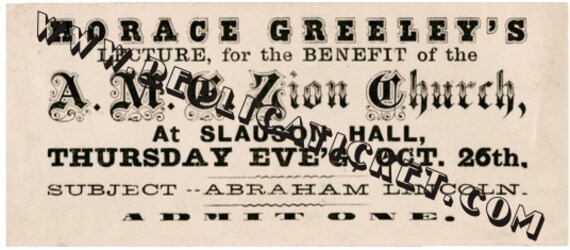 HORACE GREELEY'S
LECTURE, for the BENEFIT of the
A. M. E. Zion Church,
At SLAUSON HALL,
THURSDAY EVE'G, OCT. 26th.
SUBJECT--ABRAHAM LINCOLN.
ADMIT ONE.
WWW.REPLICATICKET.COM